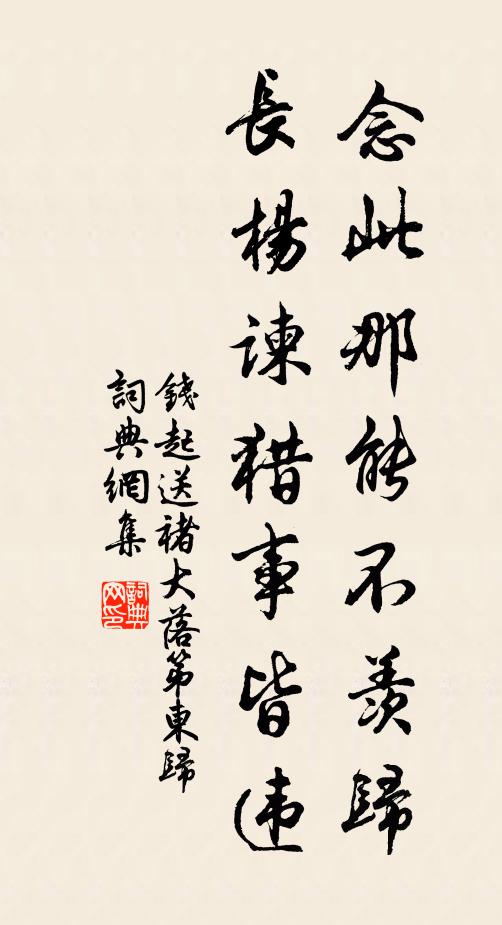 念此那能不羨歸
長楊諫猎事皆违
錢起送褚大落第東歸
詞典網集
詞典网印